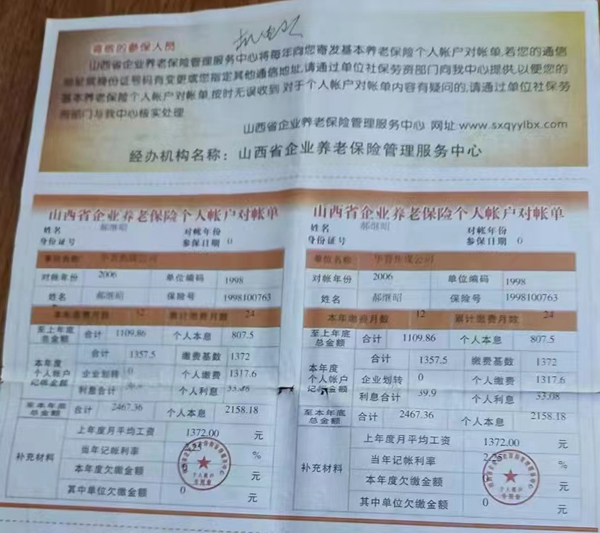 尊敬的参保人员
山西省企业养老保险管理服务中心将每年向您寄发基本养老保险个人帐户对帐单,若您的通信
地址或身份证号码有变更或您指定其他通信地址,请通过单位社保劳资部门向我中心提供,以便您的
基本养老保险个人帐户对帐单,按时无误收到 对于个人帐户对帐单内容有疑问的,请通过单位社保劳
资部门与我中心核实处理
山西省企业养老保险管理服务中心 网址:www.sxqyylbx.com
经办机构名称:山西省企业养老保险管理服务中心
山西省企业养老保险个人帐户对帐单
姓名 郝继昭 对帐年份
身份证号 参保日期 0
单位名称
对帐年份 2006 单位编码 1998
姓名 郝继昭 保险号 1998100763
本年缴费月数 12 累计缴费月数 24
至上年底总金额 合计 1109.86 个人本息 807.5
本年度个人帐户记帐金额 合计 1357.5 缴费基数 1372
企业划转 0 个人缴费 1317.6
利息合计 39.9 个人利息
至本年底总金额 合计 2467.36 个人本息 2158.18
补充材料 上年度月平均工资 1372.00 元
当年记帐利率
本年度欠缴金额 元
其中单位欠缴金额 0 元
山西省企业养老保险个人帐户对帐单
姓名 郝继昭 对帐年份
身份证号 参保日期 0
单位名称
对帐年份 2006 单位编码 1998
姓名 郝继昭 保险号 1998100763
本年缴费月数 12 累计缴费月数 24
至上年底总金额 合计 1109.86 个人本息 807.5
本年度个人帐户记帐金额 合计 1357.5 缴费基数 1372
企业划转 0 个人缴费 1317.6
利息合计 39.9 个人利息 33.08
至本年底总金额 合计 2467.36 个人本息 2158.18
补充材料 上年度月平均工资 1372.00 元
当年记帐利率
本年度欠缴金额 元
其中单位欠缴金额 0 元